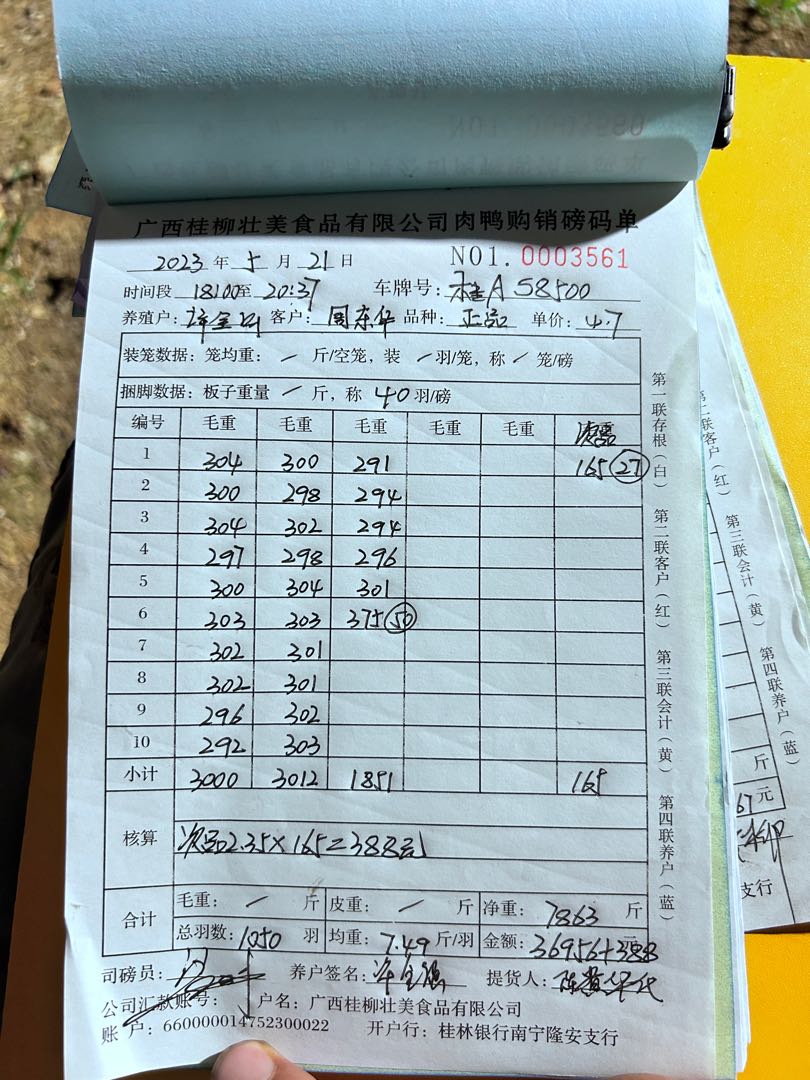 广西桂柳壮美食品有限公司肉鸭购销磅码单
2023 年 5 月 21 日 NO1. 0003561
时间段 18:00至 20:37 车牌号: 桂A 58500
养殖户: 客户: 周东华 品种: 正品 单价: 4.7
装笼数据: 笼均重: / 斤/空笼, 装 / 羽/笼, 称 / 笼/磅
捆脚数据: 板子重量 / 斤, 称 40 羽/磅
编号 毛重 毛重 毛重 毛重 毛重 次品
1 304 300 291 165 27
2 300 298 294
3 304 302 294
4 297 298 296
5 300 304 301
6 303 303 375 50
7 302 301
8 302 301
9 296 302
10 292 303
小计 3000 3012 1851 165
核算 次品2.35×165=388元
合计 毛重: / 斤 皮重: / 斤 净重: 7863 斤
总羽数: 1050 羽 均重: 7.49 斤/羽 金额: 36956+388 元
司磅员: 养户签名: 提货人:
公司汇款账号: 户名: 广西桂柳壮美食品有限公司
账 户: 660000014752300022 开户行: 桂林银行南宁隆安支行
第一联存根(白) 第二联客户(红) 第三联会计(黄) 第四联养户(蓝)
第二联客户(红) 第三联会计(黄) 第四联养户(蓝)
斤
67元
支行